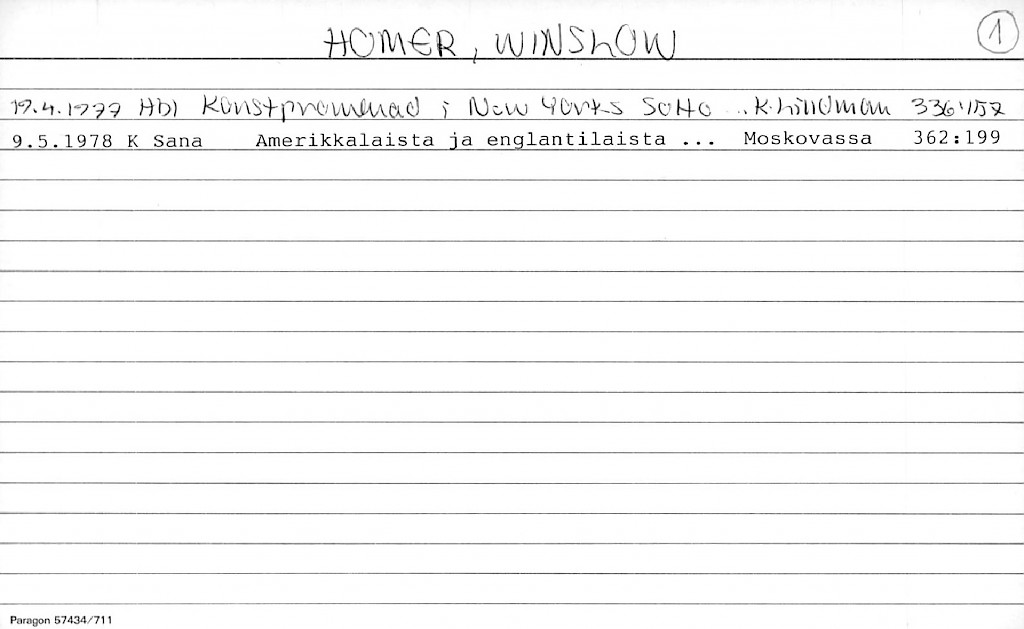 HOMER, WINSLOW
1
19.4.1977 Hbl Konstpromenad i New Yorks SoHo ... K. Lindman 336:157
9.5.1978 K Sana Amerikkalaista ja englantilaista ... Moskovassa 362:199
Paragon 57434/711